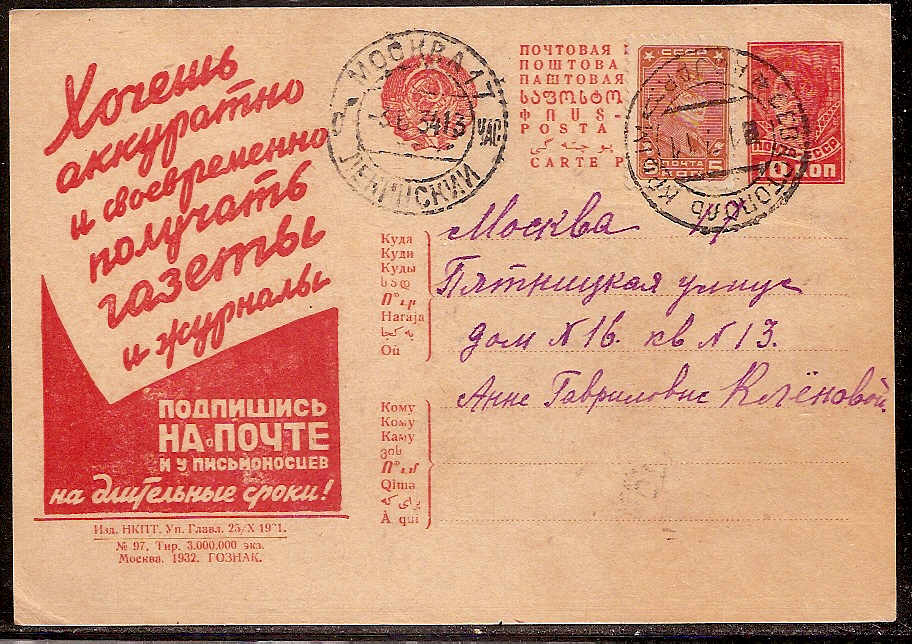 Хочешь
аккуратно
и своевременно
получать
газеты
и журналы
ПОДПИШИСЬ
НА ПОЧТЕ
И У ПИСЬМОНОСЦЕВ
на длительные сроки!
Изд. НКПТ. Уп. Главл. 25/X 1931.
№ 97. Тир. 3.000.000 экз.
Москва. 1932. ГОЗНАК.
МОСКВА 17
34 13
ЧАС.
ЛЕНИНСКИЙ
ПОЧТОВАЯ
ПОШТОВА
ПАШТОВАЯ
ՓՈՍ-
POSTA
CARTE P
СССР
ПОЧТА
5
КОП.
СЕВАСТОПОЛЬ
ПОЧТА СССР
10 КОП
Москва 17
Пятницкая улица
дом N 16. кв N 13.
Анне Гавриловне Клёновой.
Куда
Куди
Куды
Haraja
Où
Кому
Кому
Каму
ვის
Qima
À qui